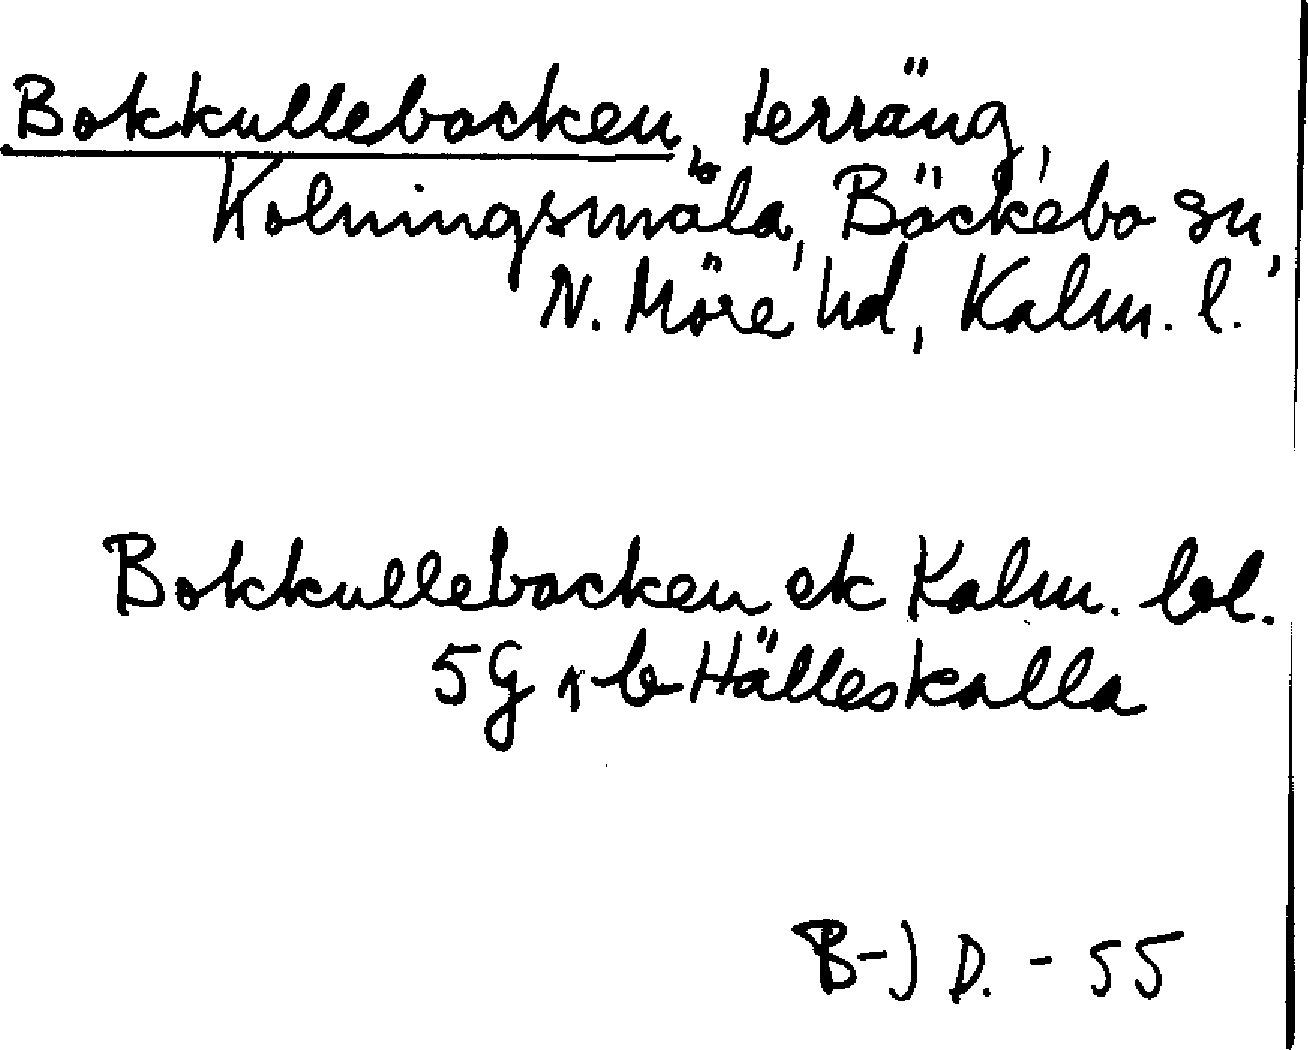 Bokkullebacken, terräng,
Kolningsmåla, Bäckebo sn,
N. Möre hd, Kalm. l.
Bokkullebacken ek Kalm. bl.
5G Hälleskalla
B-J D. - 55